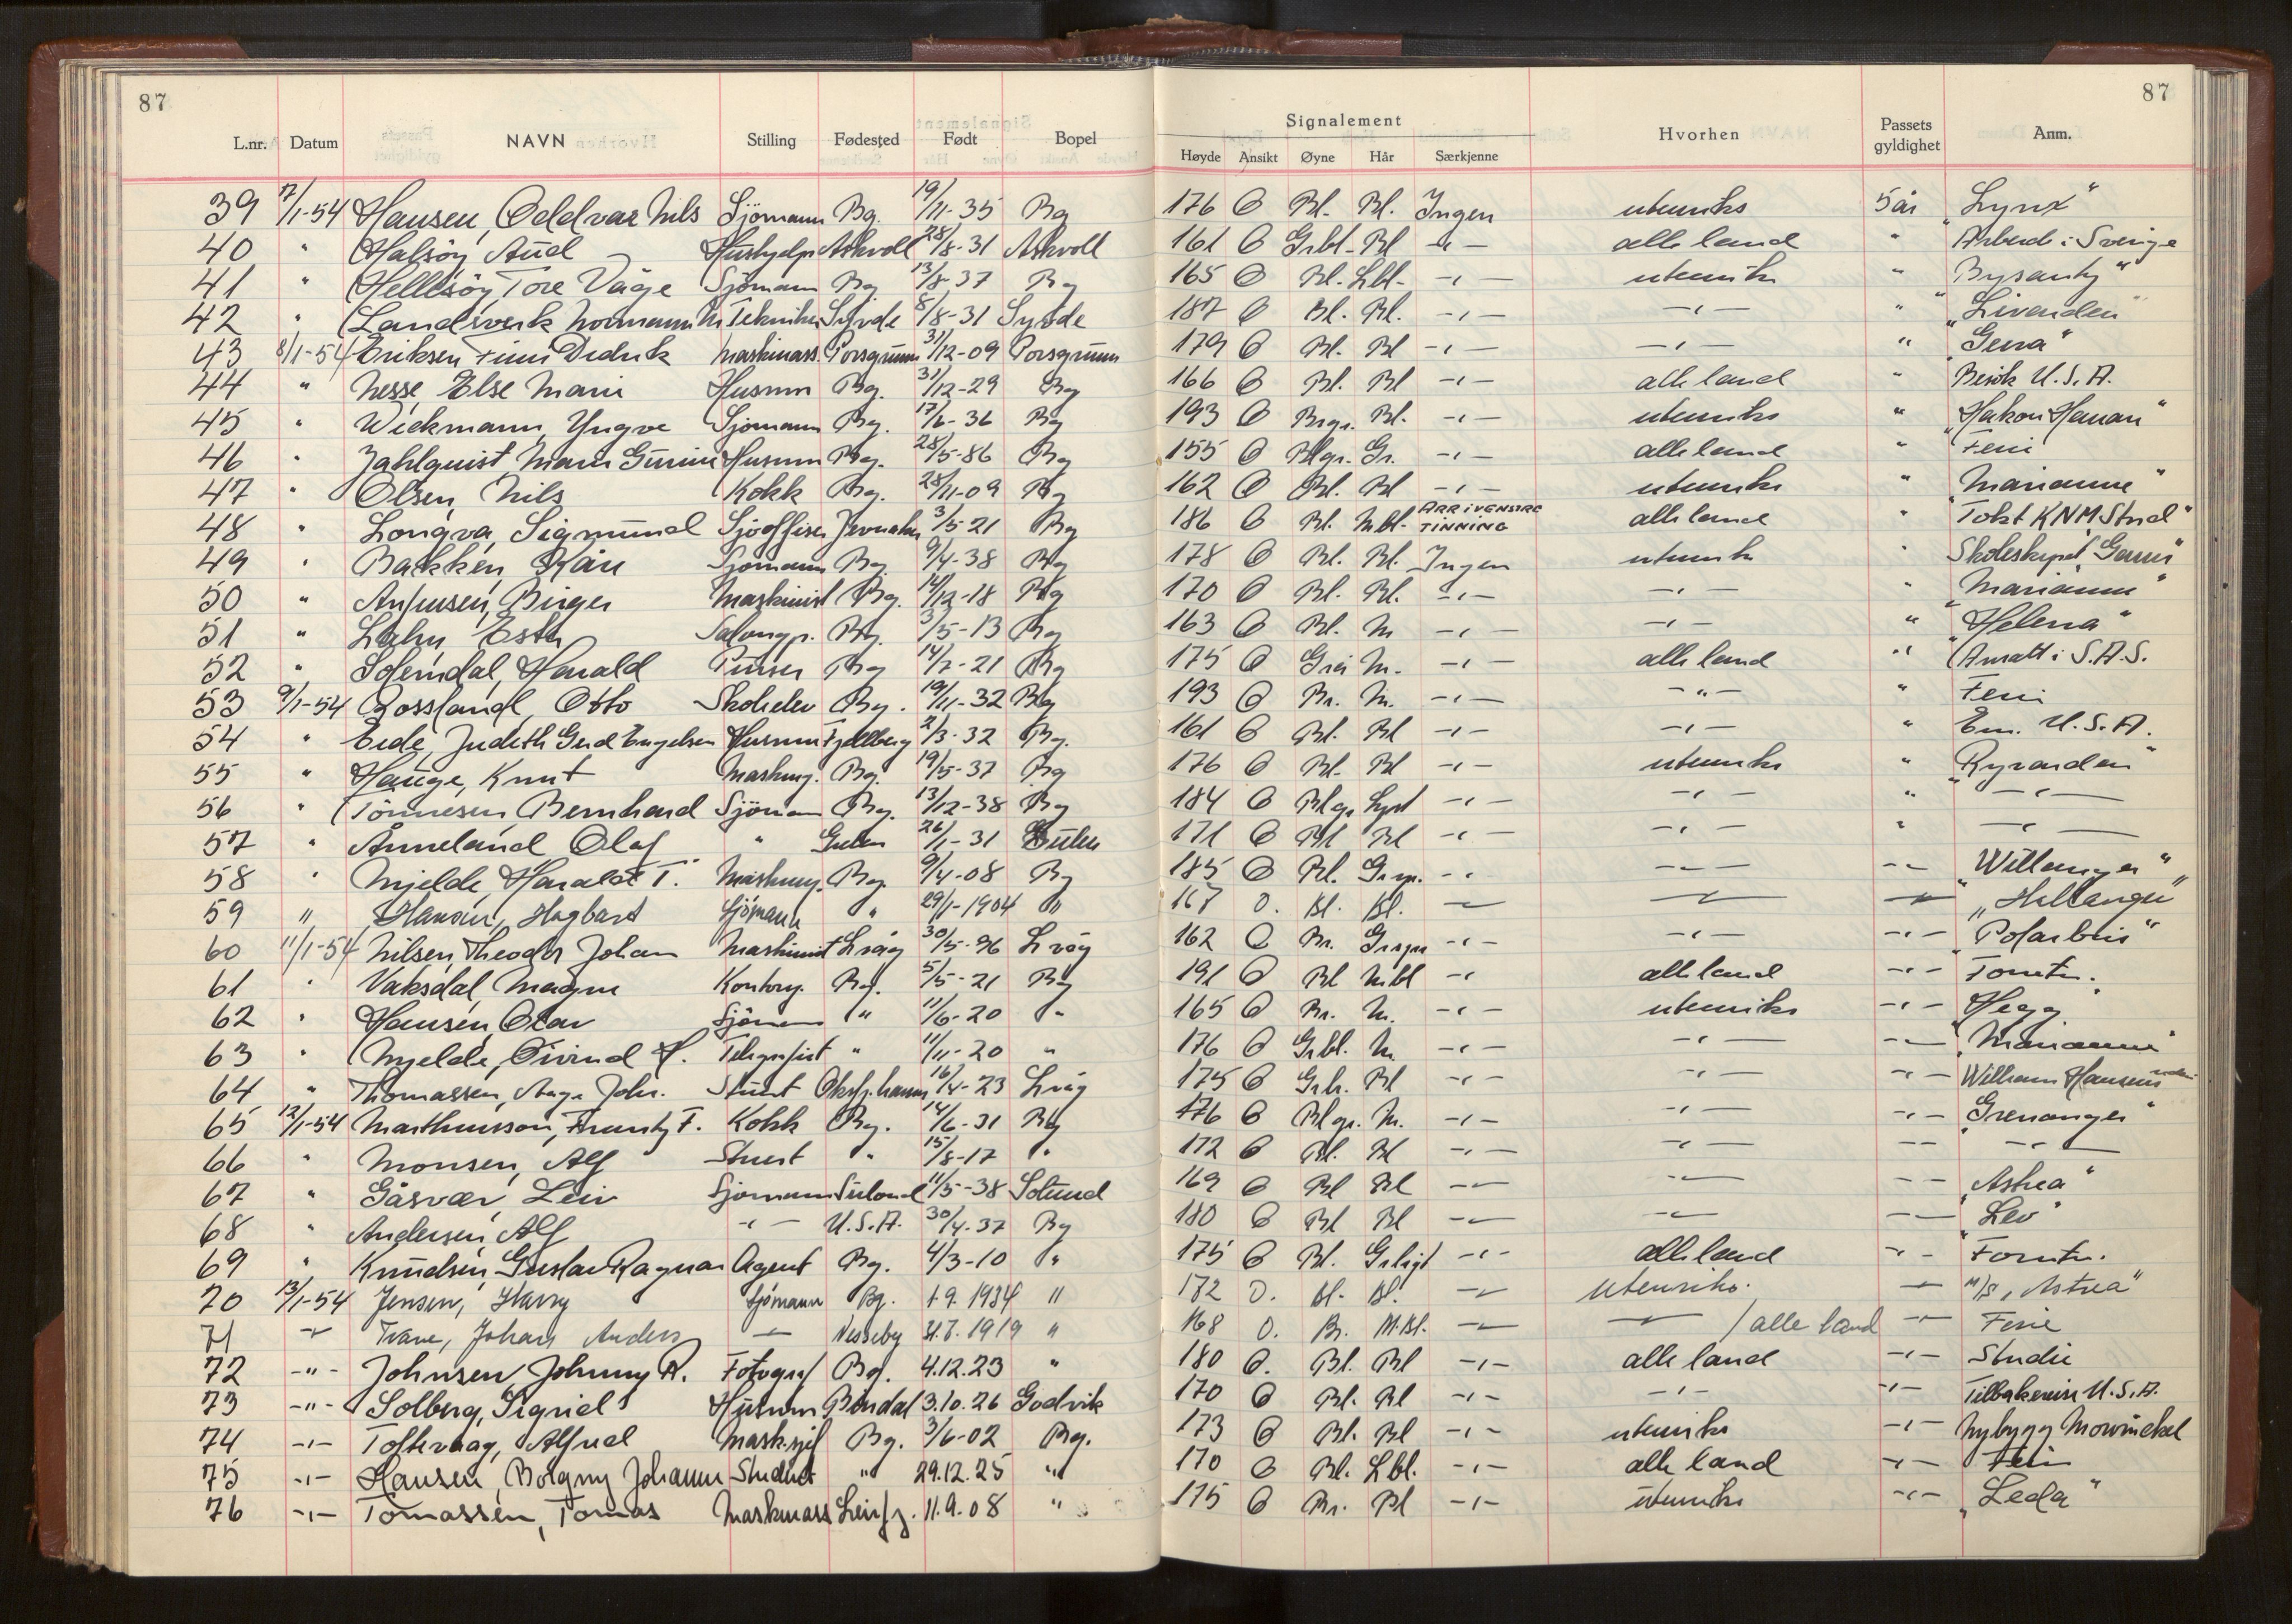 87
87
L.nr. Datum NAVN Stilling Fødested Født Bopel
Signalement
Høyde Ansikt Øyne Hår Særkjenne Hvorhen Passets gyldighet Anm.
39 7/1-54 Hansen, Oddvar Nils Sjømann Bg. 19/11-35 Bg 176 O Bl. Bl. Ingen utenriks 5 år "Lynx"
40 " Halsöy Aud Hushjelp Askvoll 28/8-31 Askvoll 161 O Grbl. Bl -,- alle land " Arbeid i Sverige
41 " Hellesöy, Tore Våge Sjømann Bg 13/8-37 Bg 165 O Bl. Lbl. -,- utenriks "
42 " Landsverk Normann Tekniker Syvde 8/8-31 Syvde 187 O Bl. Bl. -,- -,- "
43 8/1-54 Eriksen Finn Dedrik Maskinass. Porsgrunn 31/12-09 Porsgrunn 179 O Bl. Bl -,- -,- "
44 " Nesse, Else Marie Husmor Bg. 31/12-29 Bg 166 O Bl. Bl -,- alle land " Besök U.S.A.
45 " Wickmann, Yngve Sjømann Bg. 17/6-36 Bg 193 O Brgr. Bl. -,- utenriks "
46 " Jahlquist, Husmor Bg. 28/5-86 Bg 155 O Blgr. Gr. -,- alle land " Feri
47 " Olsen, Nils Kokk Bg. 28/11-09 Bg 162 O Bl. Bl -,- utenriks " "Marianne"
48 " Longva, Sigmund Sjöoffiser Jevnaker 3/5-21 Bg 186 O Bl. Mbl. ARR I VENSTRE TINNING alle land " Tokt KNM Stord"
49 " Bakken, Kåre Sjømann Bg 9/4-38 Bg 178 O Bl. Bl. Ingen utenriks "
50 " Birger Maskinist Bg. 14/12-18 Bg 170 O Bl. Bl. -,- -,- " "Marianne"
51 " Lahn, Ester Salongp. Bg. 3/5-13 Bg 163 O Bl. M -,- -,- " "Helena"
52 " Solemdal, Harald Purser Bg 14/7-21 Bg 175 O Grå M. -,- alle land " Ansatt i S.A.S.
53 9/1-54 Rossland, Otto Skoleelev Bg. 19/11-32 Bg 193 O Br. M. -,- -"- " Feri
54 " Eide, Judith Gerd Engelsen Husmor Fjellberg 2/3-32 Bg. 161 O Bl. Bl -,- -,- " Em. U.S.A.
55 " Hauge, Knut Masking. Bg. 19/5-37 Bg 176 O Bl. Bl -,- utenriks "
56 " Tönnesen, Bernhard Sjömann Bg. 13/12-38 Bg 184 O Blgr Lyst -,- -,- " -,-
57 " Ånneland Olaf " Gulen 26/1-31 Gulen 171 O Bl Bl -,- -,- " -,-
58 " Mjelde, Harald T. Masking. Bg. 9/4-08 Bg 185 O Bl. -,- -,- -- "Willanger"
59 " Hansen, Hagbart Sjømann " 29/1-1904 " 167 O. Bl. Bl. -,- -,- -,-
60 11/1-54 Nilsen, Theodor Johan Maskinist 30/5-96 162 O Br. -,- -,- -,- "Polarbris"
61 " Vaksdal, Magne Kontorg. Bg. 5/5-21 Bg 191 O Bl Mbl -,- alle land -,-
62 " Hansen, Olav Sjömann " 11/6-20 " 165 O Br. M. -,- utenriks -,- "Hegg"
63 " Mjelde, Öivind H. Telegrafist " 11/11-20 " 176 O Grbl. M. -,- -,- -,- "Marianne"
64 " Thomassen, Aage Johs. Stuert 16/4-23 175 O Bl -,- -,- -,-
65 12/1-54 F. Kokk Bg. 14/6-31 Bg 176 O Blgr. M. -,- -,- -,- "Grenanger"
66 " Monsen, Alf Stuert " 15/8-17 " 172 O Bl. Bl -,- -,- -- -,-
67 " Gåsvær, Leiv Sjömann Sulund 11/5-38 Solund 169 O Bl Bl -,- -,- -- "Astrea"
68 " Andersen, Alf -,- U.S.A. 30/4-37 Bg 180 O Bl Bl -,- -,- -- "Leo"
69 " Knudsen, Gustav Ragnar Agent Bg. 4/3-10 " 175 O Bl. -,- alle land -,-
70 13/1-54 Jensen, Harry Sjømann Bg. 1.9.1934 " 182 O. Bl. Bl. -,- utenriks. -,- M/S "Astrea"
71 -,- Johan Anders -,- Nesseby 31.7.1919 " 168 O. Br. M.Bl. -,- -,- / alle land -,- Ferie
72 -"- Johnsen, Johnny R. Fotograf Bg. 4.12.23 " 180 O. Bl. Bl -,- alle land -,- Studie
73 -"- Solberg, Sigrid Husmor Bindal 3.10.26 Godvik 170 O Bl. Bl -,- -,- -,- Tilbakereise U.S.A.
74 -,- Toftevaag, Alfred Masksjef Bg. 3/6-02 Bg. 173 O Bl. Bl -,- utenriks -,- Nybygg Mowinckel
75 -,- Hansen, Borgny Johanne Student " 29.12.25 " 170 O Bl. Lbl. -,- alle land -,- Feri
76 -,- Tomassen, Tomas Maskinass 11.9.08 " 175 O Br. Bl -,- utenriks -,- "Leda"